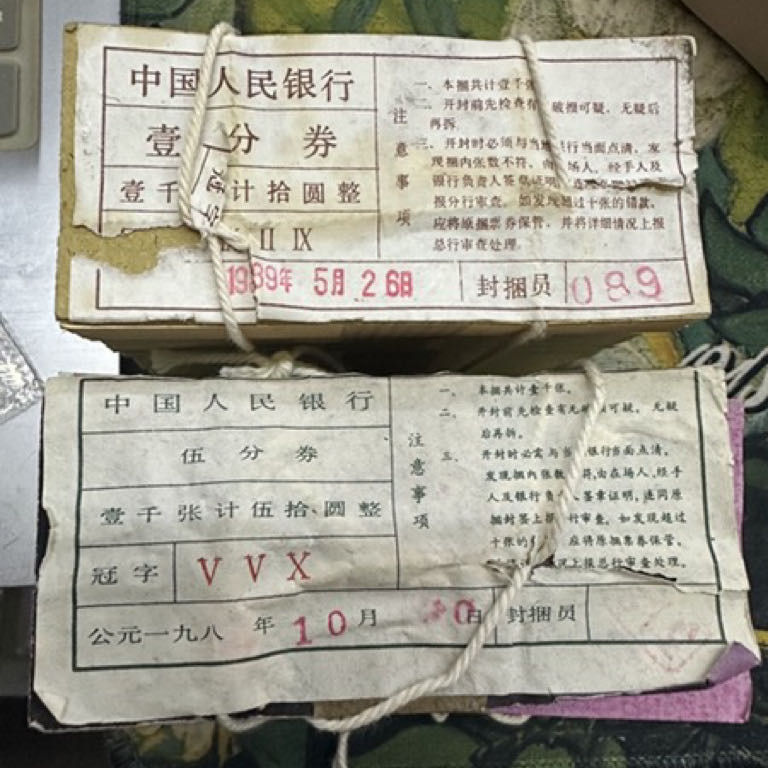 中国人民银行
壹分券
壹千 计拾圆整
冠字
II IX
1989年 5月 26日
封捆员 089
注意事项
一、本捆共计壹千张
二、开封前先检查有 破损可疑,无疑后
再拆
三、开封时必须与当地 行当面点清,发
现捆内张数不符, 场人,经手人及
银行负责人签章证明,
报分行审查。如发现超过十张的错款,
应将原捆票券保管,并将详细情况上报
总行审查处理。
中国人民银行
伍分券
壹千张计伍拾圆整
冠字 V V X
公元一九八 年 10月 0日 封捆员
注意事项
一、本捆共计壹千张。
二、开封前先检查有无 可疑,无疑
后再拆。
三、开封时必需与当 银行当面点清,
发现捆内张数 符,由在场人,经手
人及银行负 人签章证明,连同原
捆封签上报 行审查,如发现超过
十张的 应将原捆票券保管,
情况上报总行审查处理。